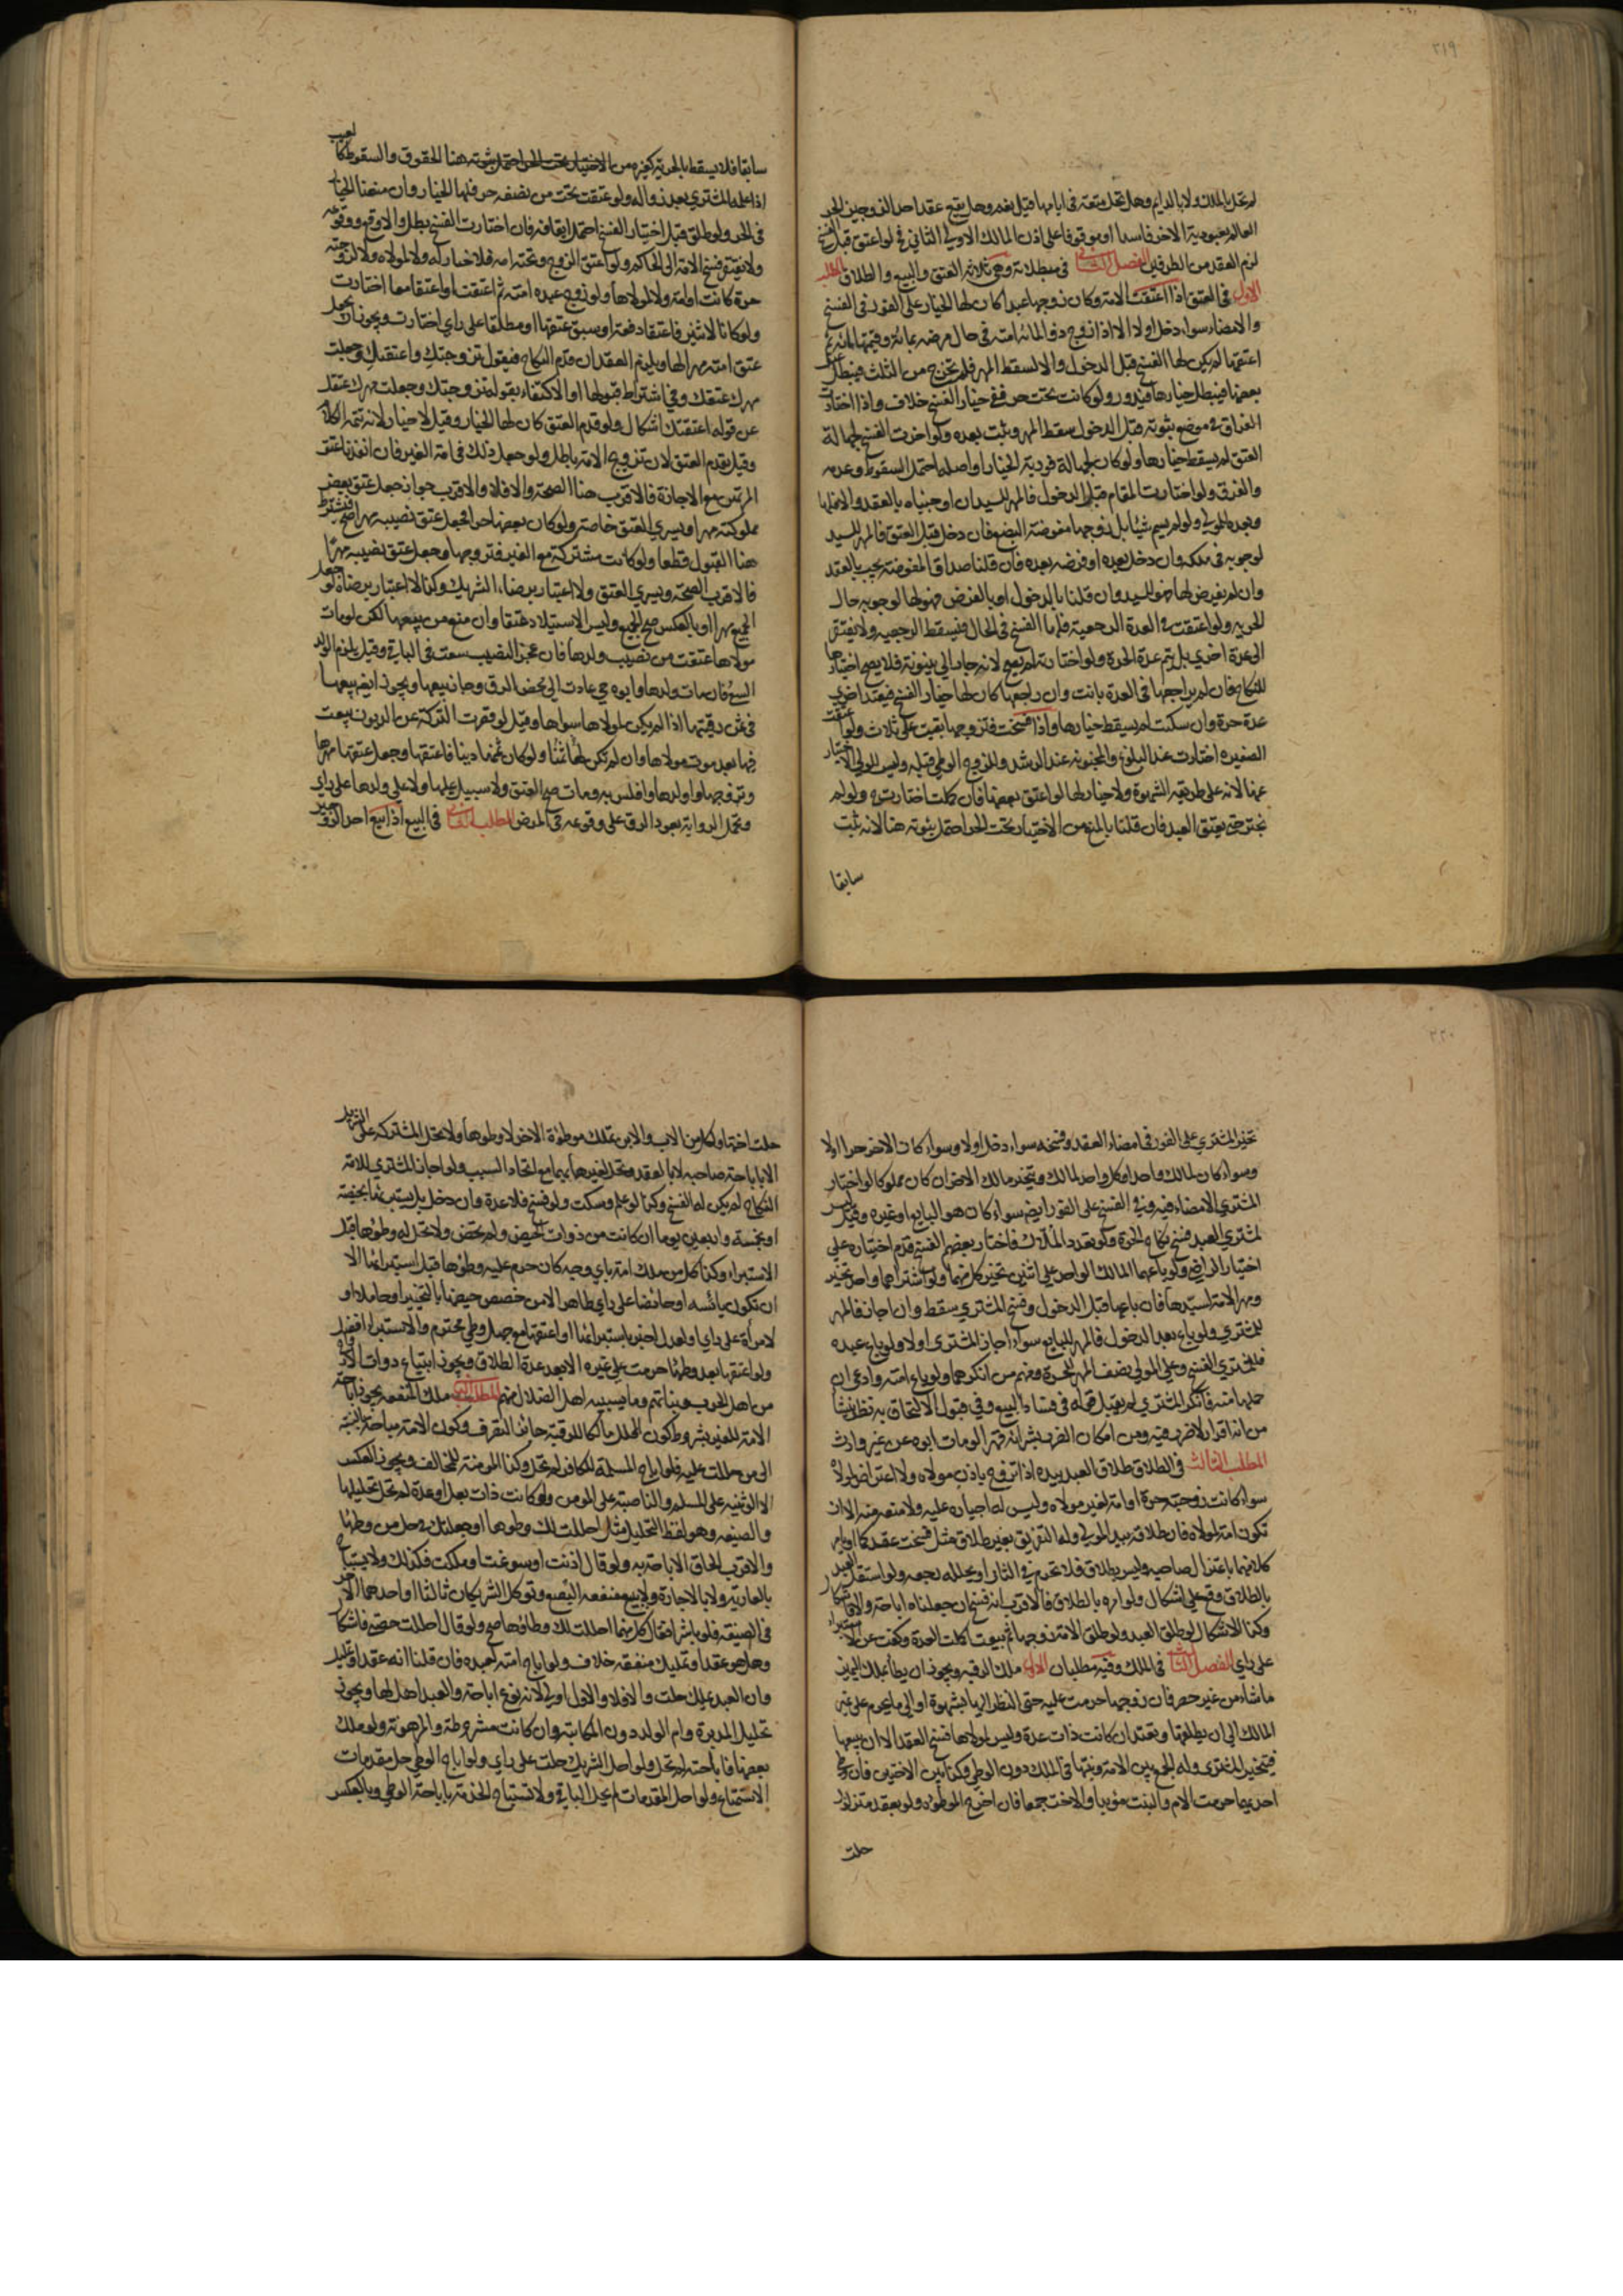 ٣١٩
لم تحل بالملك ولا بالدايم وهل تحل متعة في ايامها قيل نعم وهل يقع عقد احد الزوجين الحر
العالم بعبودية الاخر فاسدا او موقوفا على اذن المالك الاولي الثاني فح لو اعتق قبل الفسخ
لزم العقد من الطرفين الفصل الثاني في مبطلاته وهي ثلاثة العتق والبيع والطلاق المطلب
الاول في العتق اذا اعتقت الامة وكان زوجها عبدا كان لها الخيار على الفور في الفسخ
والامضاء سواء دخل اولا الا اذا زوج ذو المائة امته في حال مرضه بمائة وقيمتها مائة ثم
اعتقها لم يكن لها الفسخ قبل الدخول والا لسقط المهر فلم تخرج من الثلث فيبطل عتق
بعضها فيبطل خيارها فيدور ولو كانت تحت حر ففي خيار الفسخ خلاف واذا اختارت
الفراق في موضع ثبوته قبل الدخول سقط المهر ويثبت بعده ولو اخرت الفسخ لجهالة
العتق لم يسقط خيارها ولو كان لجهالة فورية الخيار او اصله احتمل السقوط وعدمه
والفرق ولو اختارت المقام قبل الدخول فالمهر للسيد ان اوجبناه بالعقد والا فلها
وبعده للمولى ولو لم يسم شيئا بل زوجها مفوضة البضع فان دخل قبل العتق فالمهر للسيد
لوجوبه في ملكه وان دخل بعده او فرضه بعده فان قلنا صداق المفوضة يجب بالعقد
وان لم يفرض لها فهو للسيد وان قلنا بالدخول او بالفرض فهو لها لوجوبه حال
الحرية ولو اعتقت في العدة الرجعية فلها الفسخ في الحال فيسقط الرجعية ولا يفتقر
الى عدة اخرى بل يتم عدة الحرة ولو اختارته لم يصح لانه جار الى بينونة فلا يصح اختيارها
للنكاح فان لم يراجعها في العدة بانت وان راجعها كان لها خيار الفسخ فيعتد اخرى
عدة حرة وان سكتت لم يسقط خيارها واذا فسخت فتزوجها بقيت على ثلاث ولو اعتقت
الصغيرة اختارت عند البلوغ والمجنونة عند الرشد وللزوج الوطي قبله وليس للولي الاختيار
عنها لانه على طريق الشهوة ولا خيار لها لو اعتق بعضها فان كملت اختارت ح ولو لم
تختر حتى يعتق العبد فان قلنا بالمنع من الاختيار تحت الحر احتمل ثبوته هنا لانه يثبت
سابقا
سابقا فلا يسقط بالحرية كغيره من الحقوق والسقوط كالعيب
اذا علمه المشتري بعد زواله ولو عتقت تحت من نصفه حر فلها الخيار وان منعنا الخيار
في الحر ولو طلق قبل اختيار الفسخ احتمل ايقافه فان اختارت الفسخ بطل والا وقع ووقوعه
ولا يفتقر فسخ الامة الى الحاكم ولو اعتق الزوج وتحته امة فلا خيار له ولا لمولاه ولا لزوجته
حرة كانت او امة ولا لمولاها ولو زوج عبده امته ثم اعتقت او اعتقا معا اختارت
ولو كانا لاثنين فاعتقا دفعة او سبق عتقها او مطلقا على راي اختارت ويجوز ان يجعل
عتق امته مهرا لها ويلزم العقد ان قدم النكاح فيقول تزوجتك واعتقتك وجعلت
مهرك عتقك وفي اشتراط قبولها او الاكتفاء بقوله تزوجتك وجعلت مهرك عتقك
عن قوله اعتقتك اشكال ولو قدم العتق كان لها الخيار وقيل لا خيار لانه تتمة الكلام
وقيل يقدم العتق لان تزويج الامة باطل ولو جعل ذلك في امة الغير فان انفذنا عتق
المرتهن مع الاجازة فالاقرب هنا الصحة والا فلا والاقرب جواز جعل عتق بعض
مملوكته مهرا ويسري العتق خاصة ولو كان بعضها حرا فجعل عتق نصيبه مهرا صح ويشترط
هنا القبول قطعا ولو كانت مشتركة مع الغير فتزوجها وجعل عتق نصيبه مهرا
فالاقرب الصحة ويسري العتق ولا اعتبار برضاء الشريك وكذا لا اعتبار برضاه لو جعل
الجميع مهرا او بالعكس صح الجميع وليس الاستيلاد عتقا وان منع من بيعها لكن لو مات
مولاها عتقت من نصيب ولدها فان عجز النصيب سعت في الباقي وقيل يلزم الولد
السعي فان مات ولدها وابوه حي عادت الى محض الرق وجاز بيعها ويجوز ايضا بيعها
في ثمن رقبتها اذا لم يكن لمولاها سواها وقيل لو قصرت التركة عن الديون بيعت
فيها بعد موت مولاها وان لم تكن ثمنا لها ولو كان ثمنها دينا فاعتقها وجعل عتقها مهرها
وتزوجها واولدها وافلس به ومات صح العتق ولا سبيل عليها ولا على ولدها على راي
وتحمل الرواية بعود الرق على وقوعه في المرض المطلب الثاني في البيع اذا بيع احد الزوجين
٣٢٠
تخير المشتري على الفور في امضاء العقد وفسخه سواء دخل اولا وسواء كان الاخر حرا اولا
وسواء كانا لمالك واحد او كل واحد لمالك ويتخير مالك الاخر ان كان مملوكا لو اختار
المشتري الامضاء فيه وفي الفسخ على الفور ايضا سواء كان هو البايع او غيره وقيل ليس
لمشتري العبد فسخ نكاح الحرة ولو تعدد الملاك فاختار بعضهم الفسخ قدم اختياره على
اختيار الراضي ولو باعهما المالك الواحد على اثنين تخير كل منهما ولو اشتراهما واحد تخير
ومهر الامة لسيدها فان باعها قبل الدخول وفسخ المشتري سقط وان اجاز فالمهر
للمشتري ولو باع بعد الدخول فالمهر للبايع سواء اجاز المشتري اولا ولو باع عبده
فللمشتري الفسخ وعلى المولى نصف المهر للحرة ومنهم من انكرهما ولو باع امته وادعى ان
حملها منه فانكر المشتري لم يقبل قوله في فساد البيع وفي قبول الالتحاق به نظر ينشأ
من انه اقرار لا ضرر فيه ومن امكان الضرر بشرائه قهرا لو مات ابوه عن غير وارث
المطلب الثالث في الطلاق طلاق العبد بيده اذا تزوج باذن مولاه ولا اعتراض لمولاه
سواء كانت زوجته حرة او امة لغير مولاه وليس له اجباره عليه ولا منعه منه الا ان
تكون امة لمولاه فان طلاقه بيد المولى وله التفريق بغير طلاق مثل فسخت عقدكما او يامر
كلا منهما باعتزال صاحبه وليس بطلاق فلا تحرم في الثاني لو يخلله رجعة ولو استقل العبد
بالطلاق وقع على اشكال ولو امره بالطلاق فالاقرب انه فسخ ان جعلناه اباحة والا فاشكال
وكذا الاشكال لو طلق العبد ولو طلق الامة زوجها ثم بيعت اكملت العدة وكفت عن الاستبراء
على راي الفصل الثالث في الملك وفيه مطلبان الاول ملك الرقبة ويجوز ان يطأ بملك اليمين
ما شاء من غير حصر فان زوجها حرمت عليه حتى النظر اليها بشهوة او الى ما يحرم على غير
المالك الى ان يطلقها وتعتد ان كانت ذات عدة وليس لمولاها فسخ العقد الا ان يبيعها
فيتخير المشتري وله الجمع بين الامة وبنتها في الملك دون الوطي وكذا بين الاختين فان وطي
احديهما حرمت الام والبنت مؤبدا والاخت جمعا فان اخرج الموطوءة ولو بعقد متزلزل
حلت
حلت اختها ولكل من الاب والابن تملك موطوءة الاخر لا وطوها ولا تحل المشتركة على الشريك
الا باباحة صاحبه لا بالعقد وتحل لغيرهما بهما مع اتحاد السبب ولو اجاز المشتري للامة
النكاح لم يكن له الفسخ وكذا لو علم وسكت ولو فسخ فلا عدة وان دخل بل يستبرئها بحيضة
او بخمسة واربعين يوما ان كانت من ذوات الحيض ولم تحض ولا تحل له وطوها قبل
الاستبراء وكذا كل من ملك امة باي وجه كان حرم عليه وطؤها قبل استبرائها الا
ان تكون يائسة او حائضا على راي
لامرأة على راي او لعدل اخبر باستبرائها او اعتقها مع جهل وطي محترم والاستبراء افضل
ولو اعتقها بعد وطئها حرمت على غيره الا بعد عدة الطلاق ويجوز ابتياع ذوات الازواج
من اهل الحرب وبناتهم وما يسبيه اهل الضلال منهم المطلب الثاني ملك المنفعة يجوز اباحة
الامة للغير بشروط كون المحلل مالكا للرقبة جائز التصرف وكون الامة مباحة بالنسبة
الى من حللت عليه فلو اباح المسلمة للكافر لم تحل وكذا المؤمنة للمخالف ويجوز العكس
الا الوثنية على المسلم والناصبة على المؤمن ولو كانت ذات بعل او عدة لم تحل تحليلها
والصيغة وهو لفظ التحليل مثل احللت لك وطوها او جعلتك في حل من وطئها
والاقرب الحاق الاباحة به ولو قال اذنت او سوغت او ملكت فكذلك ولا يستباح
بالعارية ولا بالاجارة ولا ببيع منفعة البضع ولو كل الشريكان ثالثا او احدهما الاخر
في الصيغة فلو باشرا فقال كل منهما احللت لك وطاؤها صح ولو قال احللت حصتي فاشكال
وهل هو عقد او تمليك منفعة خلاف ولو اباح امته لعبده فان قلنا انه عقد او تمليك
وان العبد يملك حلت والا فلا والاول اولى لانه نوع اباحة والعبد اهل لها ويجوز
تحليل المدبرة وام الولد دون المكاتبة وان كانت مشروطة والمرهونة ولو ملك
بعضها فاباحته لم تحل ولو احل الشريك حلت على راي ولو اباح الوطي حل مقدمات
الاستمتاع ولو احل المقدمات لم يحل الباقي ولا تستباح الخدمة باباحة الوطي وبالعكس